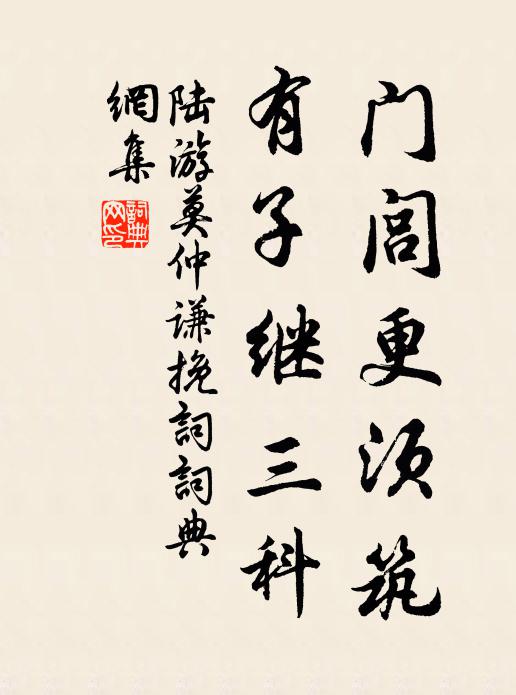 门闾更须筑
有子继三科
陆游莫仲谦挽詞詞典
網集
詞典网印